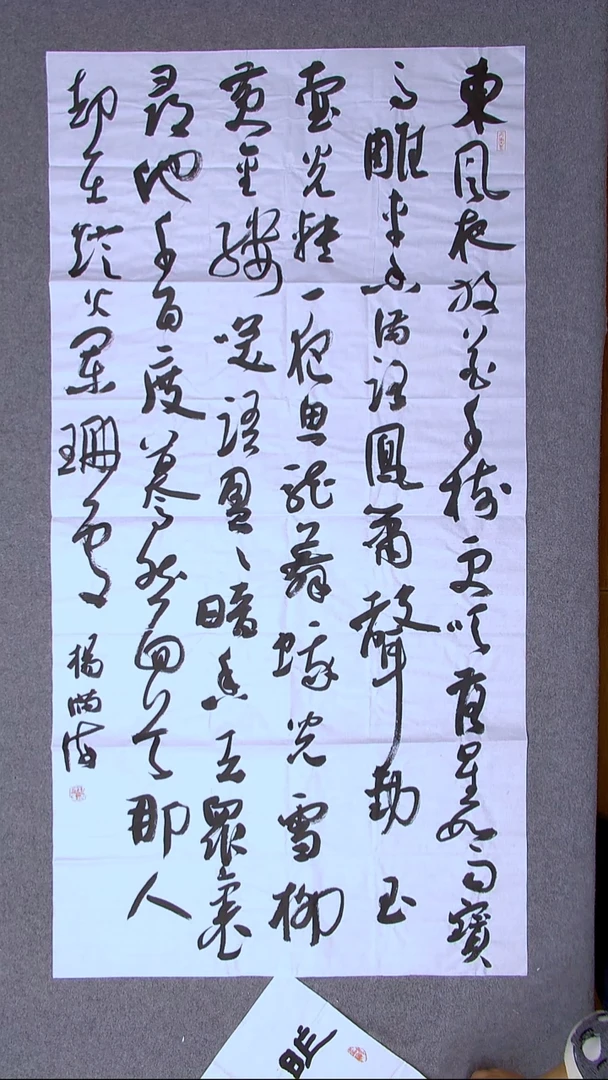 東風夜放花千樹更吹落星如雨寶
馬雕車香滿路鳳簫聲動玉
壺光轉一夜魚龍舞蛾兒雪柳
黃金縷笑語盈〻暗香去眾裏
尋他千百度驀然回首那人
却在燈火闌珊處
楊海